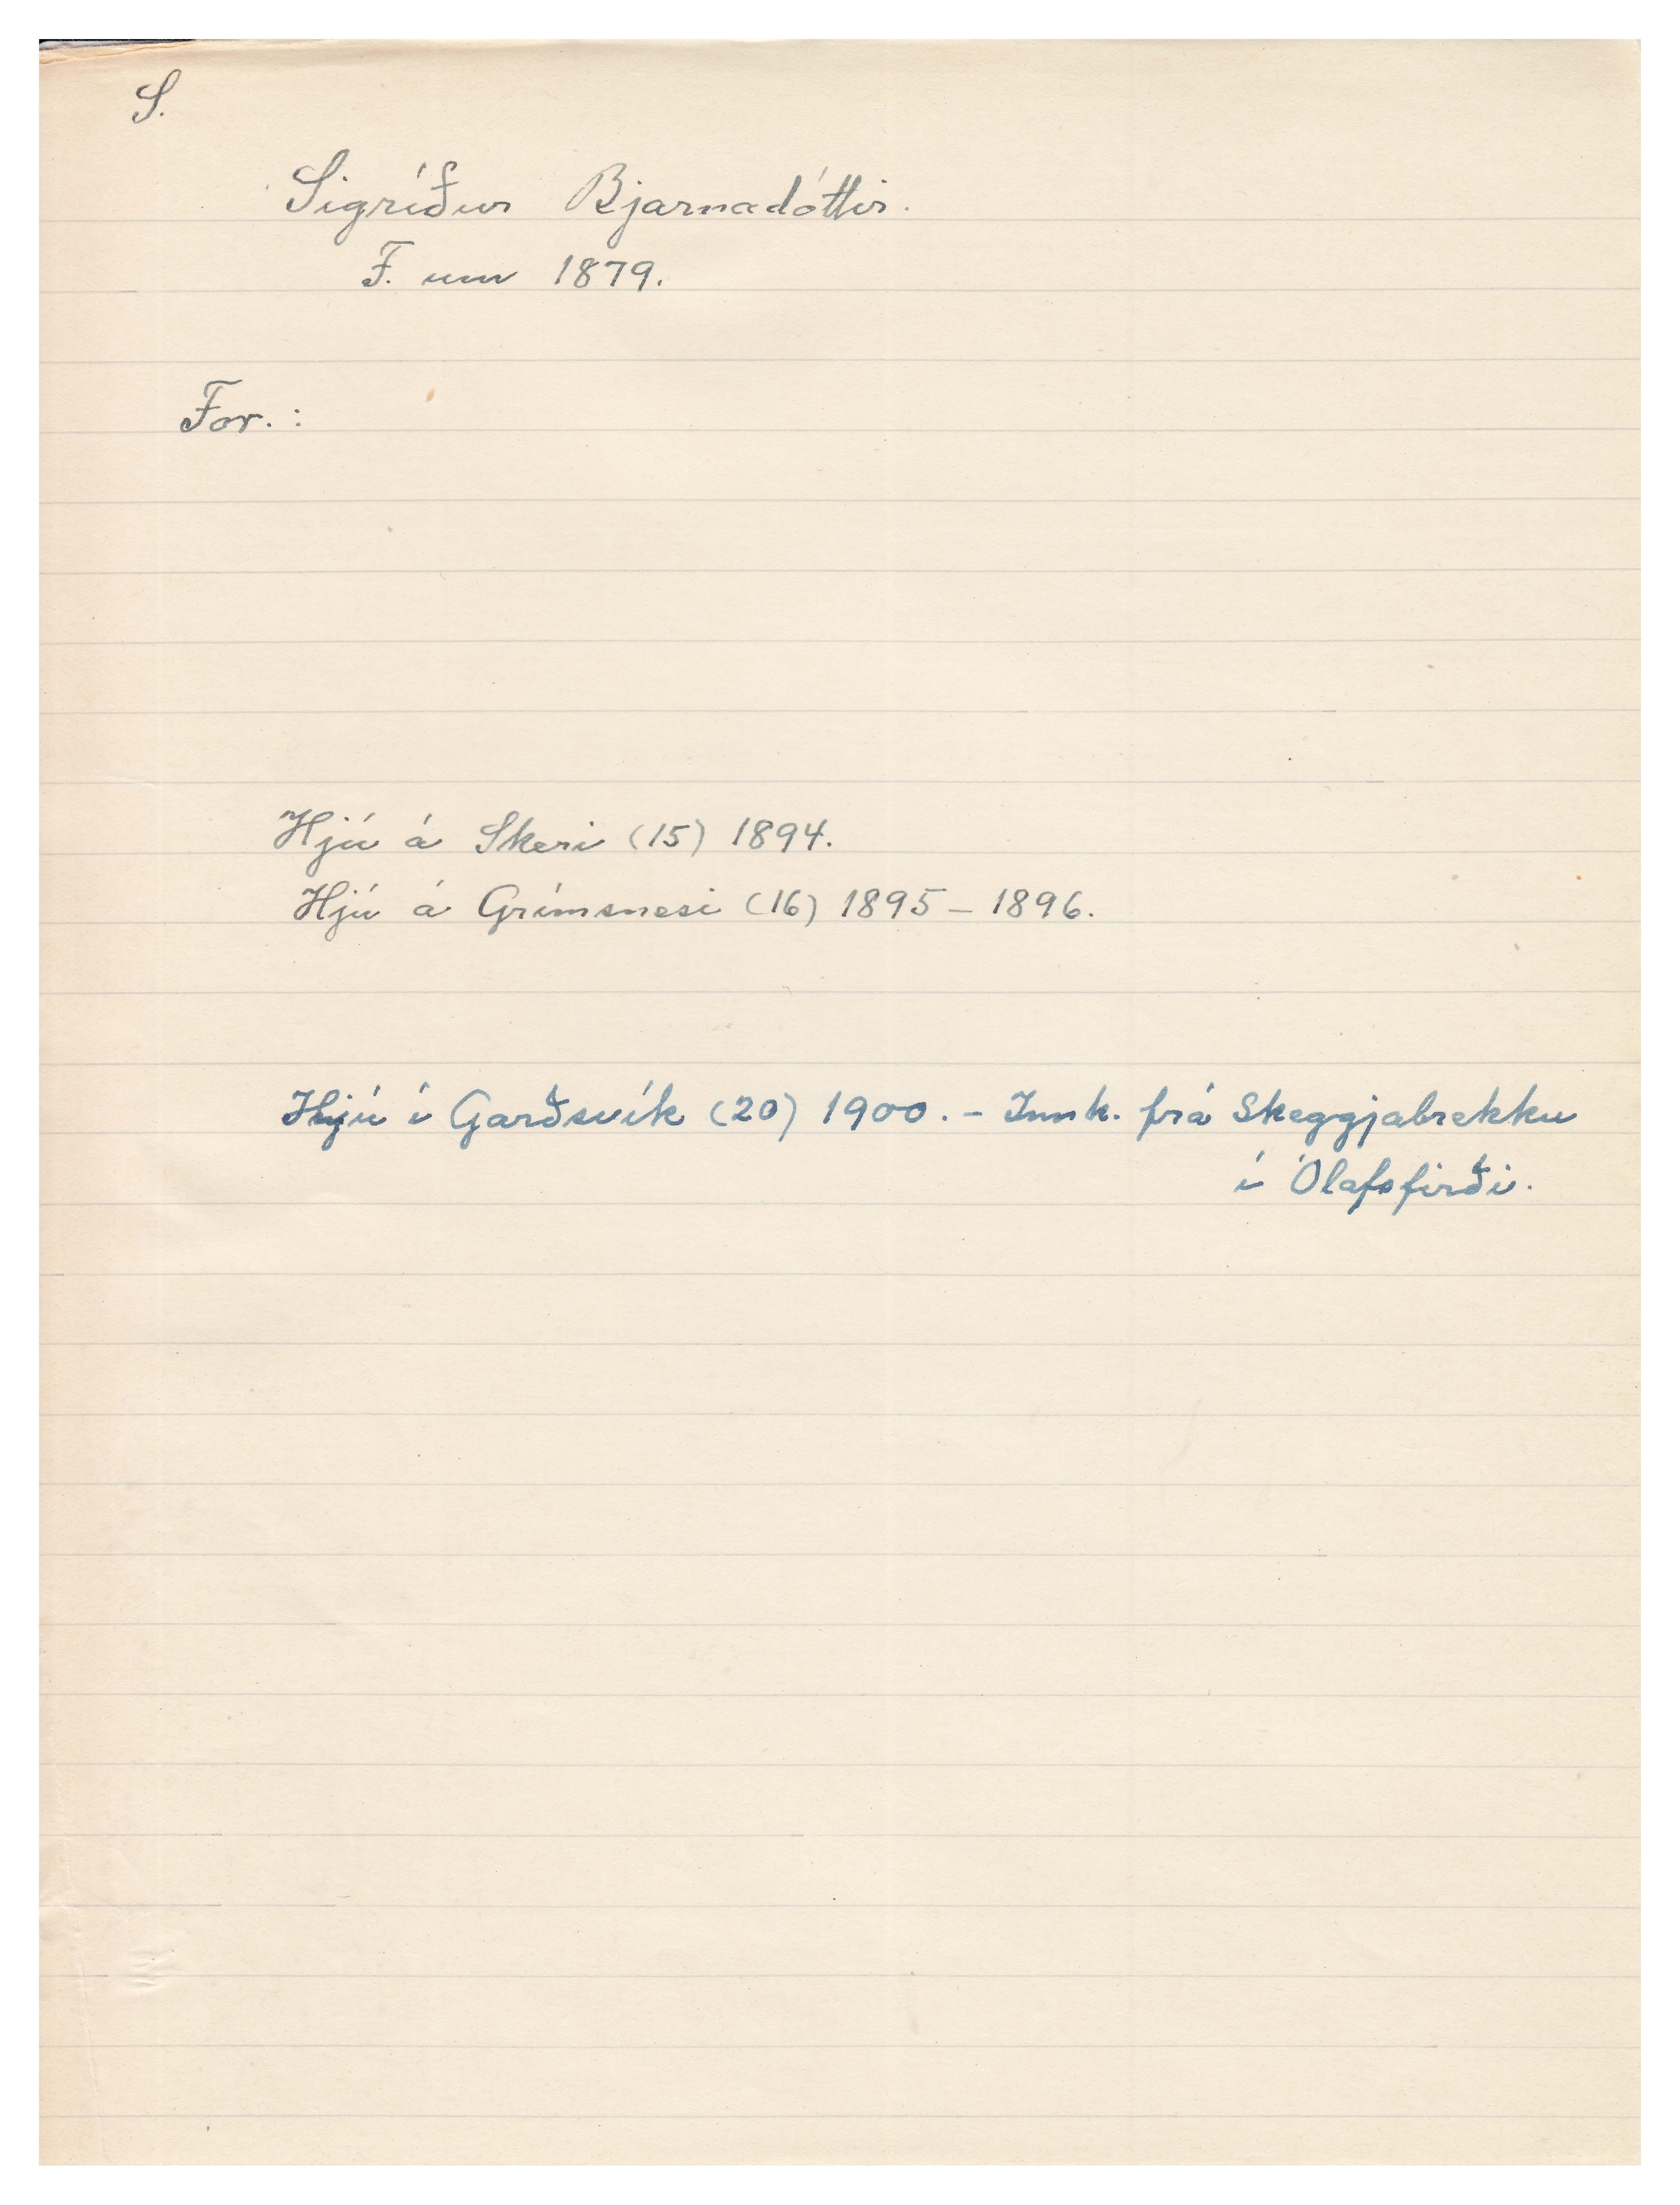 S.
Sigríður Bjarnadóttir.
F. um 1879.
For. :
Hjú á Skeri (15) 1894.
Hjú á Grímsnesi (16) 1895 - 1896.
Hjú í Garðsvík (20) 1900. - Innk. frá Skeggjabrekku
í Ólafsfirði.